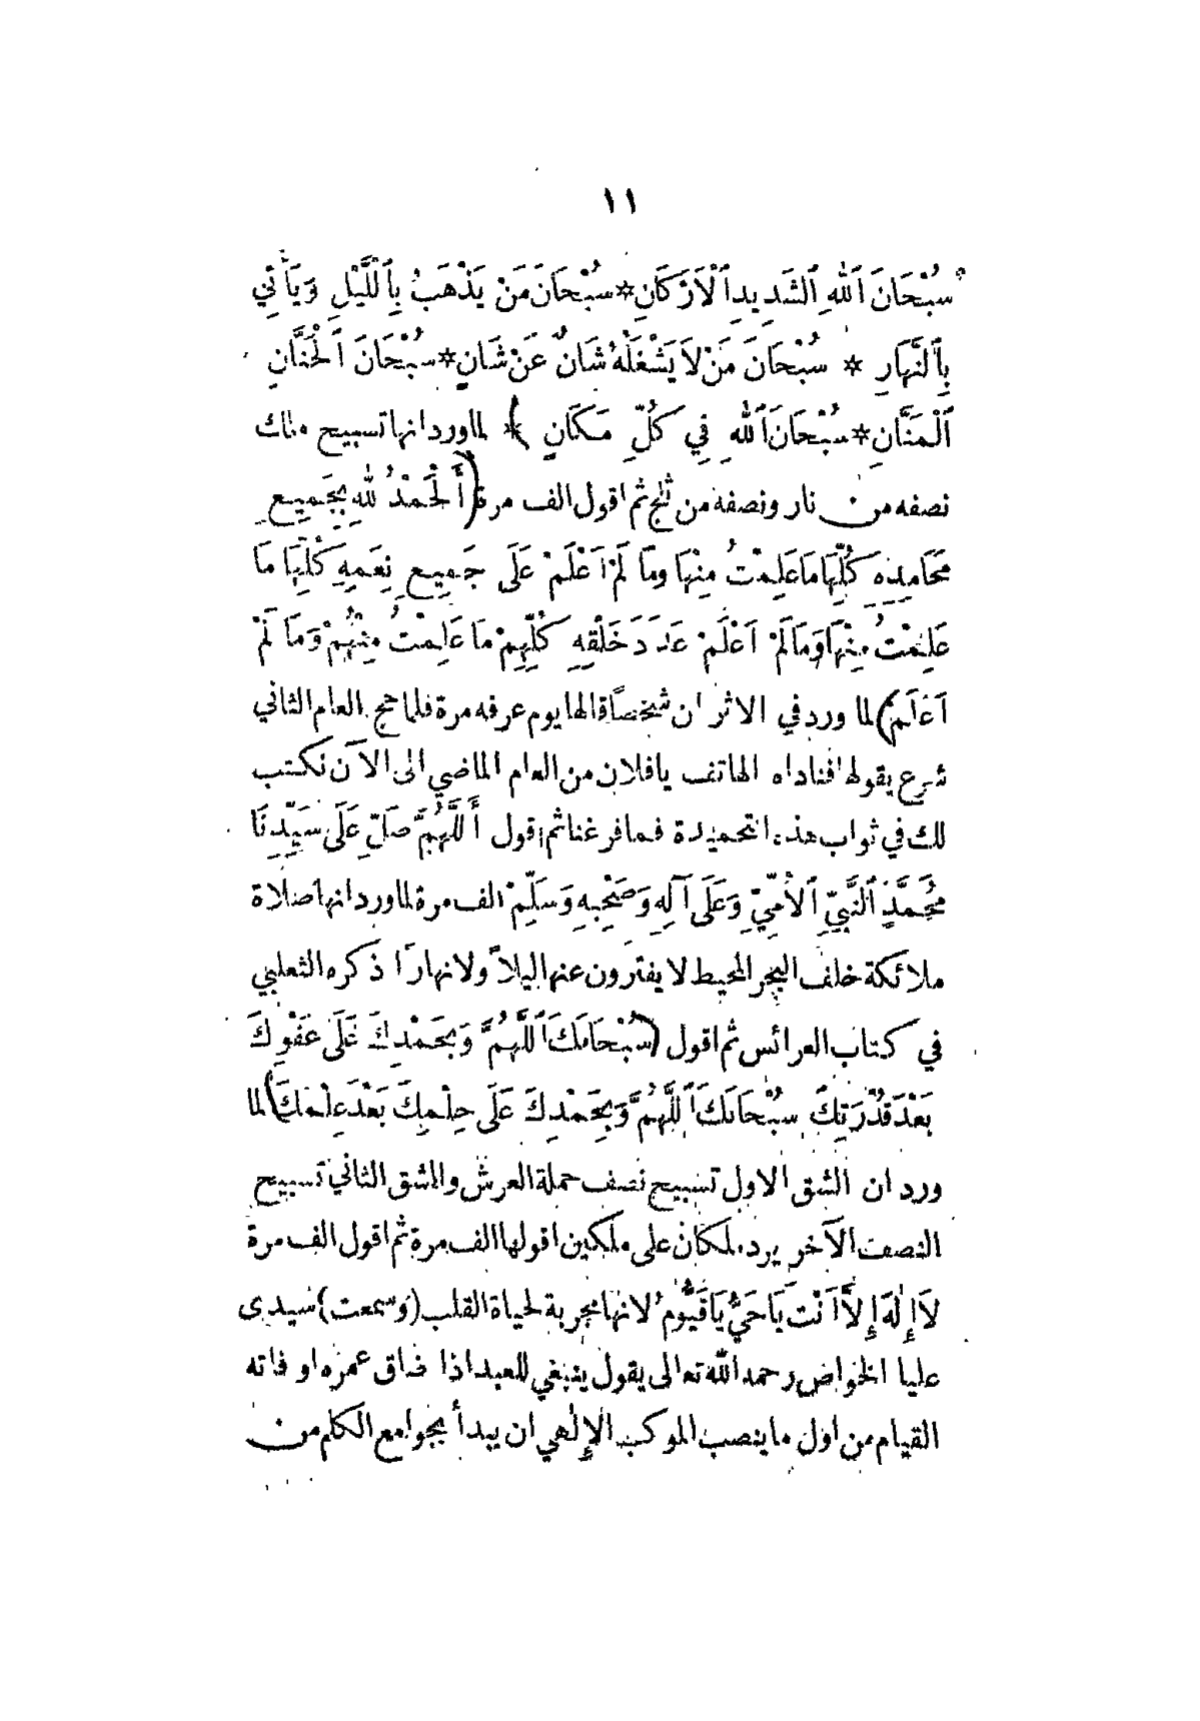 ١١
سُبْحَانَ ٱللهِ ٱلشَدِيدِ ٱلْاَرْكَانِ * سُبْحَانَ مَنْ يَذْهَبُ بِٱللَّيْلِ وَيَأْتِي
بِٱلنَّهَارِ * سُبْحَانَ مَنْ لَا يَشْغَلُهُ شَانٌ عَنْ شَانٍ * سُبْحَانَ ٱلْحَنَّانِ
ٱلْمَنَّانِ * سُبْحَانَ ٱللهِ فِي كُلِّ مَكَانٍ * ) لما ورد انها تسبيح ملك
نصفه من نار ونصفه من ثلج ثم اقول الف مرة (أَلْحَمْدُ للهِ بِجَمِيعِ
مَحَامِدِهِ كُلِّهَا مَا عَلِمْتُ مِنْهَا وَمَا لَمْ اَعْلَمْ عَلَى جَمِيعِ نِعَمِهِ كُلِّهَا مَا
عَلِمْتُ مِنْهَا وَمَا لَمْ اَعْلَمْ عَدَدَ خَلْقِهِ كُلِّهِمْ مَا عَلِمْتُ مِنْهُمْ وَمَا لَمْ
اَعْلَمْ) لما ورد في الاثر ان شخصًا قالها يوم عرفه مرة فلما حج العام الثاني
شرع يقولها فناداه الهاتف يا فلان من العام الماضي الى الآن نكتب
لك في ثواب هذه التحميدة فما فرغنا ثم اقول أَللَّهُمَّ صَلِّ عَلَى سَيِّدِنَا
مُحَمَّدٍ ٱلنَّبِيِّ ٱلْأُمِّيِّ وَعَلَى آلِهِ وَصَحْبِهِ وَسَلِّمْ الف مرة لما ورد انها صلاة
ملائكة خلف البحر المحيط لا يفترون عنها ليلاً ولا نهارًا ذكره الثعلبي
في كتاب العرائس ثم اقول (سُبْحَانَكَ ٱللَّهُمَّ وَبِحَمْدِكَ عَلَى عَفْوِكَ
بَعْدَ قُدْرَتِكَ سُبْحَانَكَ ٱللَّهُمَّ وَبِحَمْدِكَ عَلَى حِلْمِكَ بَعْدَ عِلْمِكَ) لما
ورد ان الشق الاول تسبيح نصف حملة العرش والشق الثاني تسبيح
النصف الآخر يرد ملكان على ملكين اقولها الف مرة ثم اقول الف مرة
لَا إِلٰهَ إِلاَّ أَنْتَ يَا حَيُّ يَا قَيُّومُ لانها مجربة لحياة القلب (وسمعت) سيدى
عليا الخواص رحمه الله تعالى يقول ينبغي للعبد اذا ضاق عمره او فاته
القيام من اول ما ينصب الموكب الإلهي ان يبدأ بجوامع الكلم من